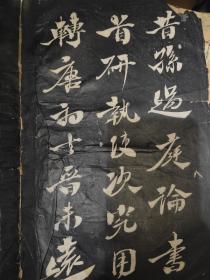 昔孫過庭論書
首研執使次究用
轉唐初去晉未遠